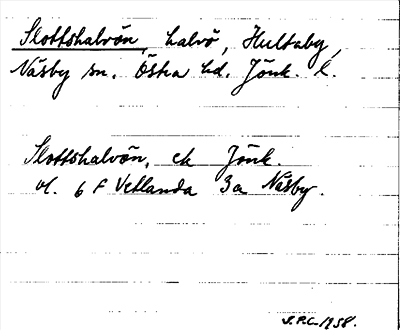 Slottshalvön, halvö, Hultaby,
Näsby sn. Östra hd. Jönk. l.
Slottshalvön, ek Jönk.
bl. 6 F Vetlanda 3a Näsby.
1958.